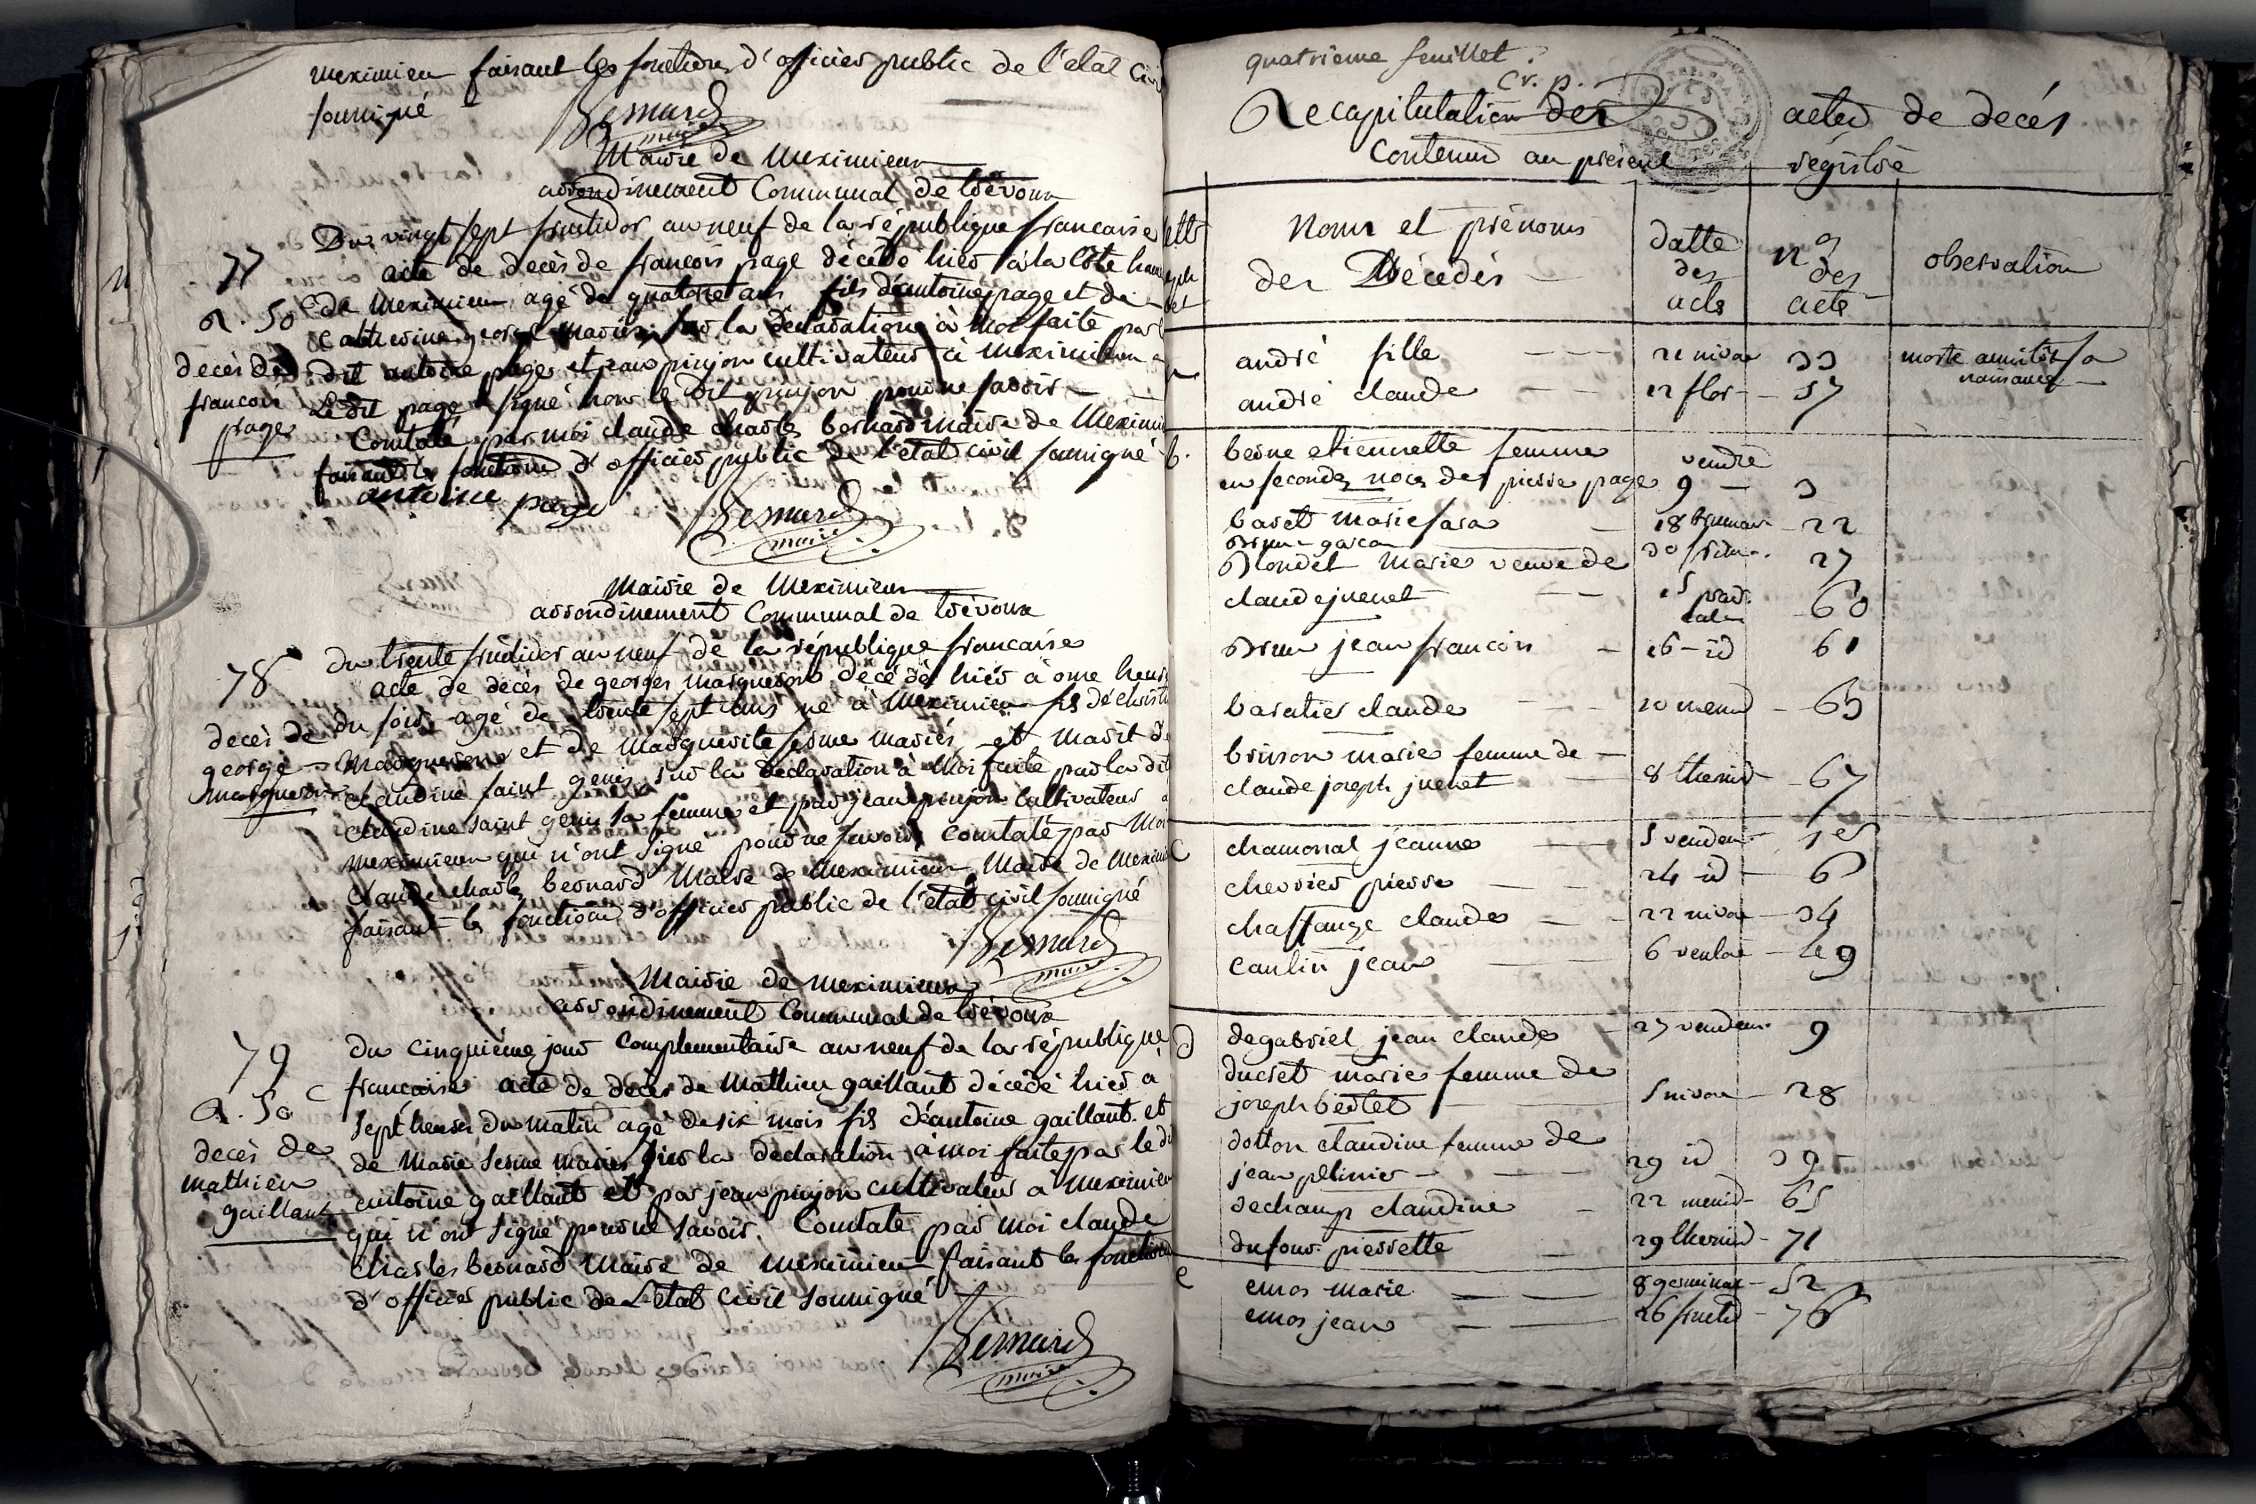 meximieu faisant les fonctions d'officier public de l'etat civil
soussigné
Bernard
maire
Mairie de Meximieux
arrondinement Communal de trévoux
77
Du vingt sept fructidor an neuf de la république francaise
acte de decès de francois page décédé hier à la Côte
a. 50 c
de Meximieux agé de quatorze ans fils d'antoine page et de
catherine mariés sur la declaration à moi faite par le
decès de
francois
page
dit antoine page et jean pinjon cultivateur à meximieux
Le dit page signé non le dit pinjon pour ne savoir
Constaté par moi claude charles bernard maire de Meximieu
faisant les fonctions d'officier public de l'état civil soussigné
antoine page
Bernard
maire
Mairie de Meximieux
arrondinement Communal de trévoux
78
du trente fructidor an neuf de la république francaise
acte de decès de georges margueron décédé hier à onze heures
decès de
george
margueron
du soir agé de trente sept ans né à Meximieu fils de
Margueron et de Marguerite mariés et marit de
claudine saint genis sur la declaration à Moi faite par la dite
claudine saint genis sa femme et par jean pinjon cultivateur a
meximieux qui n'ont signé pour ne savoir constaté par Moi
Claude charles bernard Maire de Meximieux Maire de Meximieu
faisant les fonctions d'officier public de l'état civil soussigné
Bernard
maire
Mairie de meximieux
arrondinement Communal de trévoux
79
du cinquième jour complementaire an neuf de la république
a. 50 c
francaise acte de decès de Mathieu gaillant décédé hier a
sept heures du matin agé de six mois fils d'antoine gaillant et
decès de
mathieu
gaillant
de Marie mariés sur la declaration à moi faite par le dit
antoine gaillant et par jean pinjon cultivateur à meximieu
qui n'ont signé pour ne savoir. Constaté par moi claude
charles bernard Maire de meximieu faisant les fonctions
d'officier public de L'état civil soussigné
Bernard
maire
quatrieme feuillet.
Recapitulation des actes de decés
Contenus au présent régistre
Noms et prénoms des Décédés
datte des acts
nos des acte
observation
andré fille 21 nivose 33 morte aussitôt sa naissance
andré claude 12 flor 57
b.
berne etiennette femme
en secondes noces de pierre page vendre 9 3
baret marie sara 18 brumair 22
brun garcon 30 frim. 27
blondel marie veuve de
claude juenet 15 prairial 60
brun jean francois 16 id 61
baratier claude 10 messid 63
brisson marie femme de
claude joseph juenet 8 thermid 67
c
chamonal jeanne 5 vendem 1er
chevrier pierre 24 id 6
chassange claude 22 nivose 34
caulin jean 6 ventose 49
d
degabriel jean claude 27 vendem. 9
ducret marie femme de
joseph bertet 5 nivose 28
dotton claudine femme de
jean pelinier 29 id 39
dechamp claudine 22 messid 65
dufour pierrette 29 thermid 71
e
emos marie 8 germinal 52
emos jean 26 fructid 76